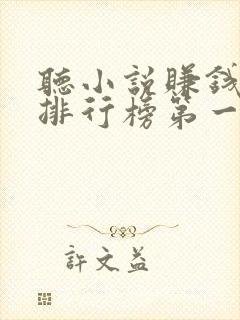 聽小說賺錢
排行榜第一
許文益